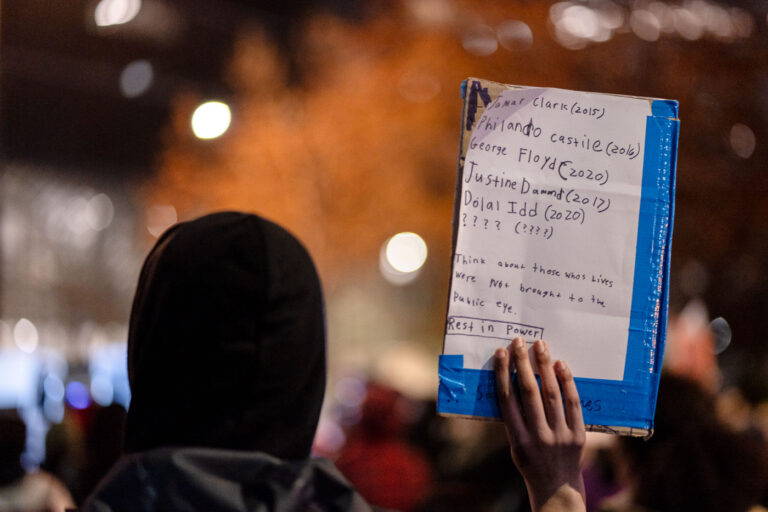 Jamar Clark (2015)
Philando castile (2016)
George Floyd (2020)
Justine Damond (2017)
Dolal Idd (2020)
? ? ? ? (????)
Think about those who's lives
were not brought to the
Public eye.
Rest in Power